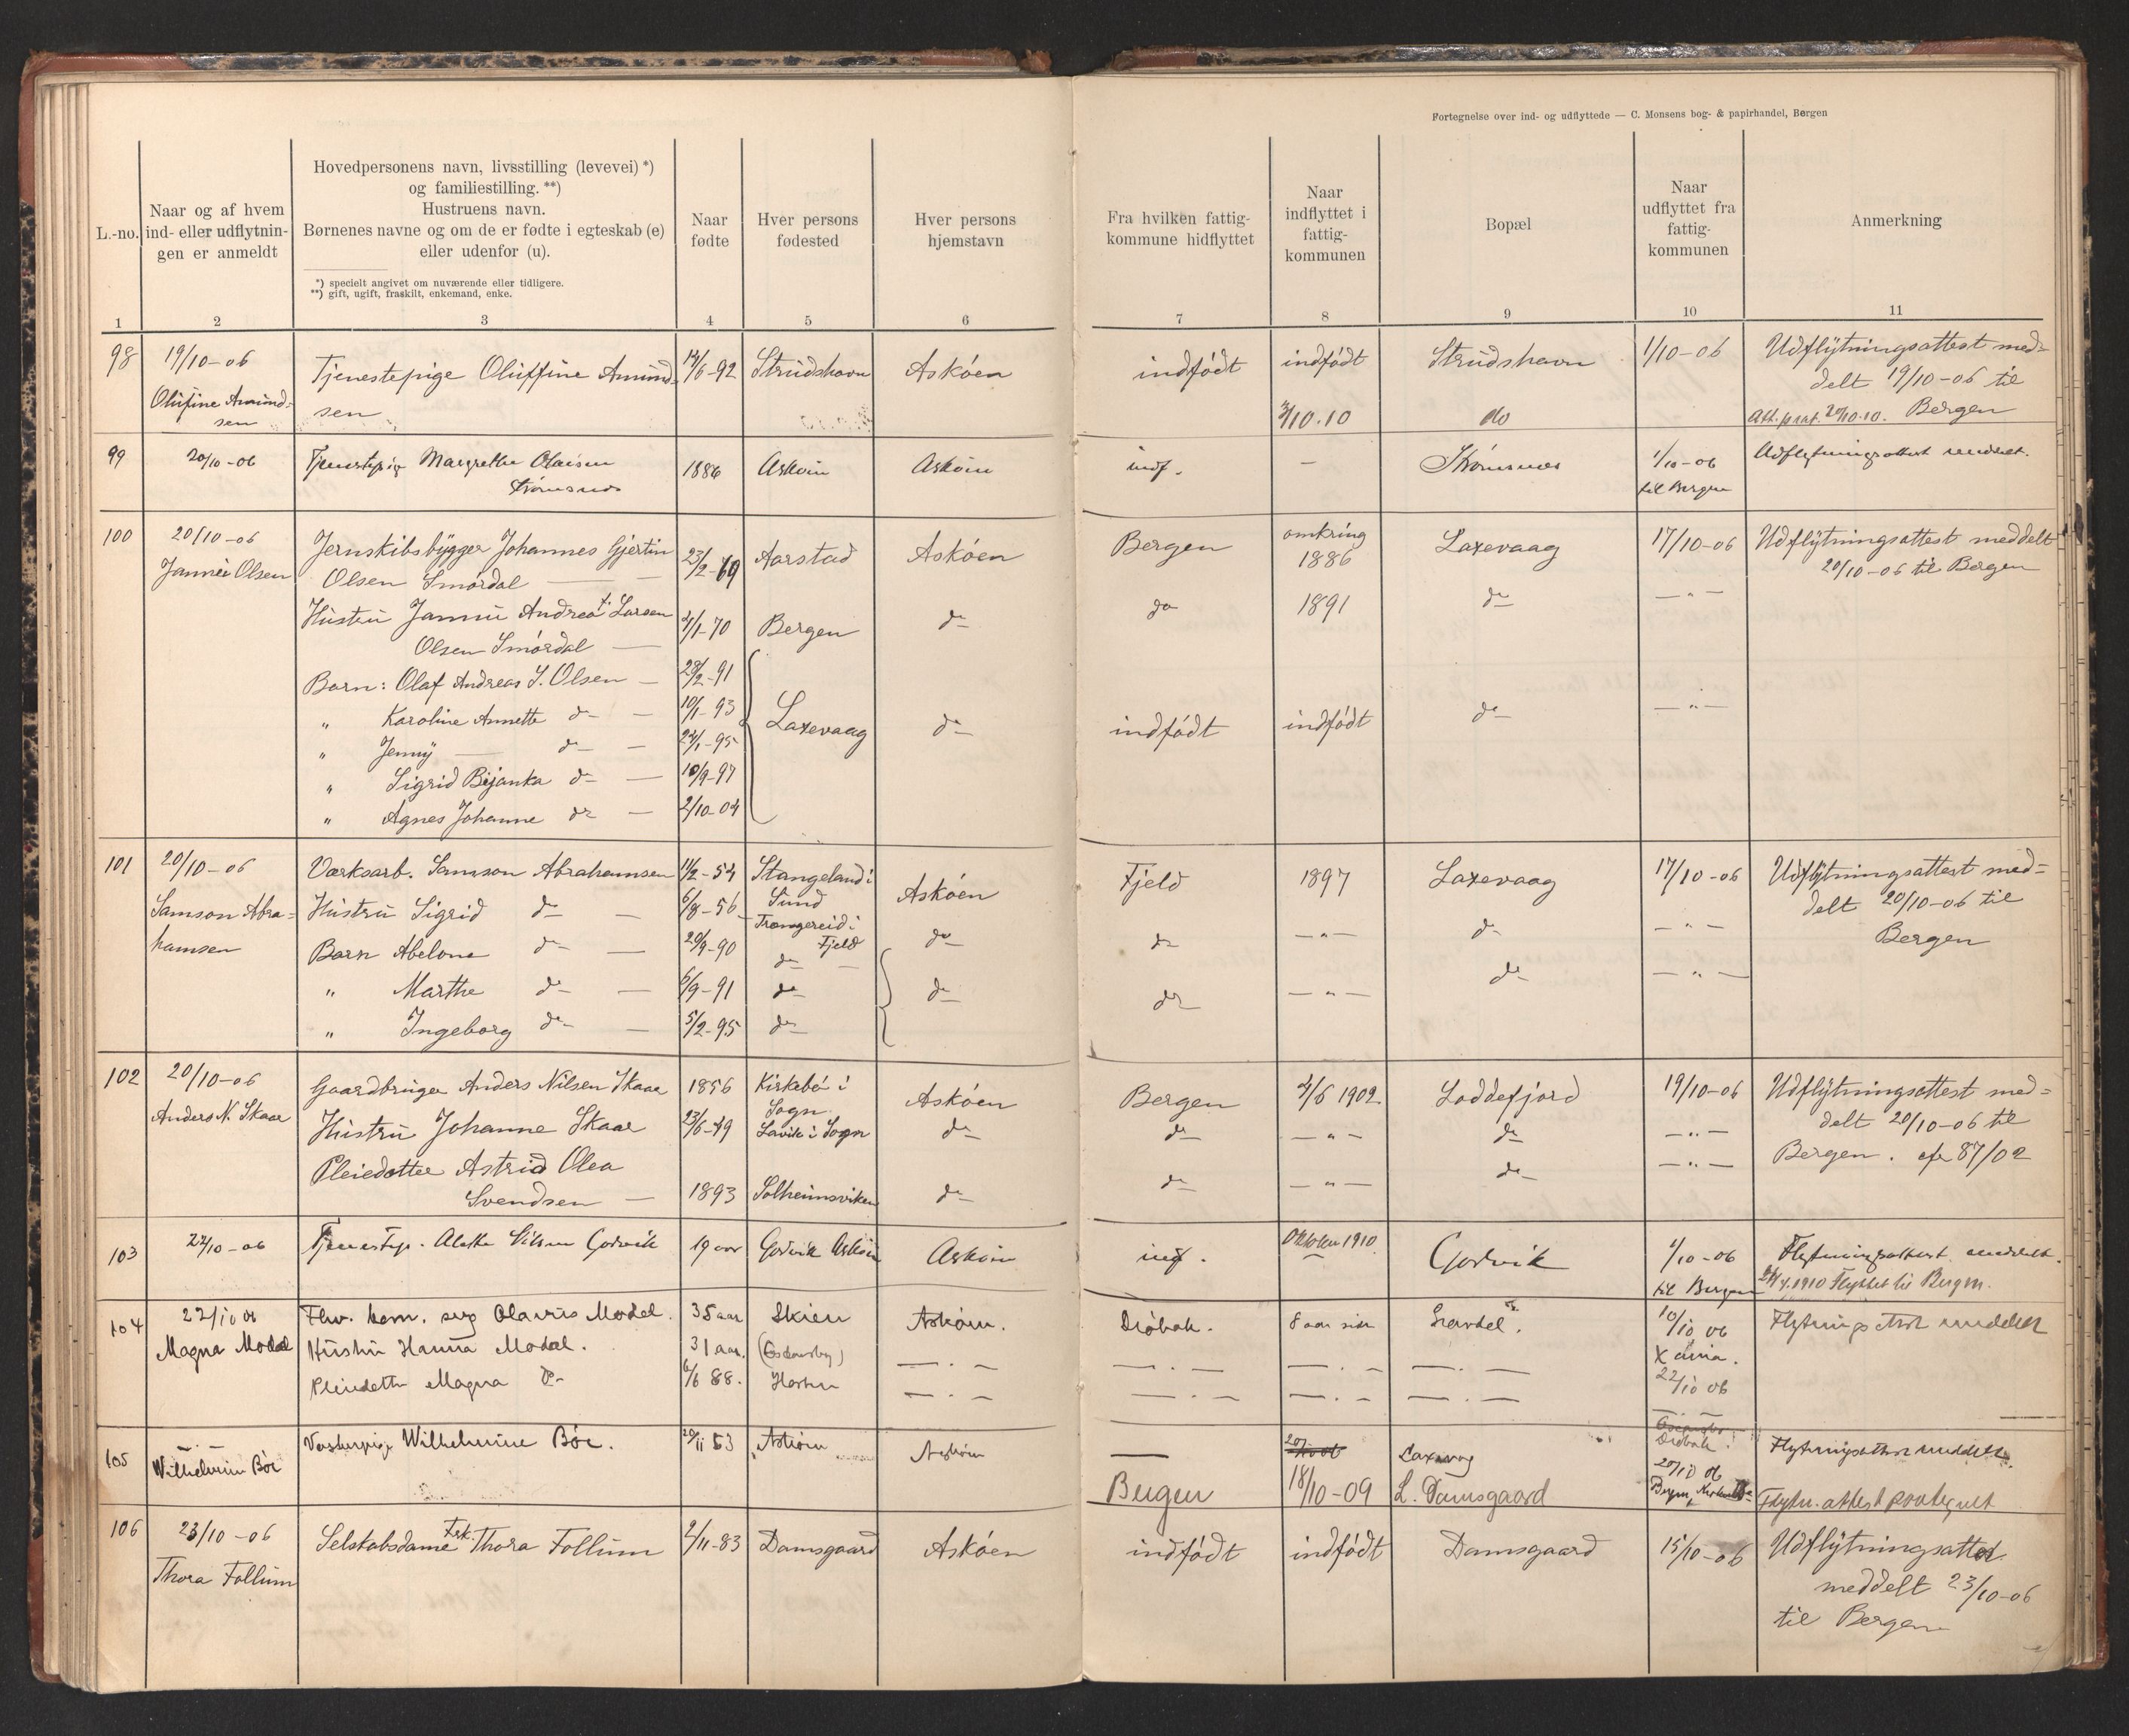 Fortegnelse over ind- og udflyttede — C. Monsens bog- & papirhandel, Bergen
L.-no.
Naar og af hvem
ind- eller udflytnin-
gen er anmeldt
Hovedpersonens navn, livsstilling (levevei) *)
og familiestilling. **)
Hustruens navn.
Børnenes navne og om de er fødte i egteskab (e)
eller udenfor (u).
*) specielt angivet om nuværende eller tidligere.
**) gift, ugift, fraskilt, enkemand, enke.
Naar
fødte
Hver persons
fødested
Hver persons
hjemstavn
Fra hvilken fattig-
kommune hidflyttet
Naar
indflyttet i
fattig-
kommunen
Bopæl
Naar
udflyttet fra
fattig-
kommunen
Anmerkning
1 2 3 4 5 6 7 8 9 10 11
98 19/10-06 Tjenestepige Oluffine Amund- Strudshavn Askøen indfødt indfødt Strudshavn 1/10-06 Udflytningsattest med-
Olufine Amund- sen delt 19/10-06 til
sen 3/10.10 do Bergen
99 20/10-06 Tjenestepige Margrethe Olaisen 1886 Askøen Askøen indf. — Strømsnes 1/10-06 Udflytningsattest meddelt.
Strømsnes til Bergen
100 20/10-06 Jernskibsbygger Johannes Gjertin 23/2-69 Aarstad Askøen Bergen omkring Laxevaag 17/10-06 Udflytningsattest meddelt
Olsen Smørdal 1886 20/10-06 til Bergen
Hustru Andrea Larsen 4/1-70 Bergen do do 1891 do — " —
Olsen Smørdal
Barn: Olaf Andreas S. Olsen — 28/2-91
" Karoline Annette do — 10/1-93 Laxevaag do indfødt indfødt do — " —
" Jenny do — 24/1-95
" Sigrid Bijanka do — 10/9-97
" Agnes Johanne do — 2/10-04
101 20/10-06 Værksarb. Samson Abrahamsen 11/2-54 Stangeland i Askøen Fjeld 1897 Laxevaag 17/10-06 Udflytningsattest med-
Samson Abra- Hustru Sigrid do — 6/8-56 Sund delt 20/10-06 til
hamsen Barn Abelone do — 20/9-90 Trængereid i Fjeld do do — " — do — " — Bergen
" Marthe do — 6/9-91 do do do — " — do — " —
" Ingeborg do — 5/2-95 do
102 20/10-06 Gaardbruger Anders Nilsen Skaar 1856 Kirkebø i Askøen Bergen 4/6 1902. Loddefjord 19/10-06 Udflytningsattest med-
Anders N. Skaar Sogn delt 20/10-06 til
Hustru Johanne Skaar 23/6-49 Lavik i Sogn do do — " — do — " — Bergen. cfr 87/02
Pleiedatter Astrid Olea do — " — do — " —
Svendsen — 1893 Solheimsviken do
103 22/10-06 Godvik 19 aar Godvik Askøen Askøen indf. Oktober 1910 Godvik 1/10-06 Flytningsattest meddelt.
til Bergen 1910 Flyttet til Bergen.
104 22/10 06 Olavus Modal. 35 aar Skien Askøen. Drøbak. 8 aar siden 10/10 06 Flytningsattest meddelt
Magna Modal Hustru Hanna Modal. 31 aar. — . — — . — — . — — . — X ania.
Pleiedatter Magna do 6/6 88. Horten — . — — . — — . — — . — 22/10 06
Drøbak
105 Wilhelmine Bøe Wilhelmine Bøe. 29/11 53 Askøen Askøen — Laxevaag 20/10 06 Flytningsattest meddelt.
Bergen 18/10-09 L. Damsgaard Bergen
106 23/10-06 Selskabsdame Frk. Thora Follum 2/11-83 Damsgaard Askøen indfødt indfødt Damsgaard 15/10-06 Udflytningsattest
Thora Follum meddelt 23/10-06
til Bergen